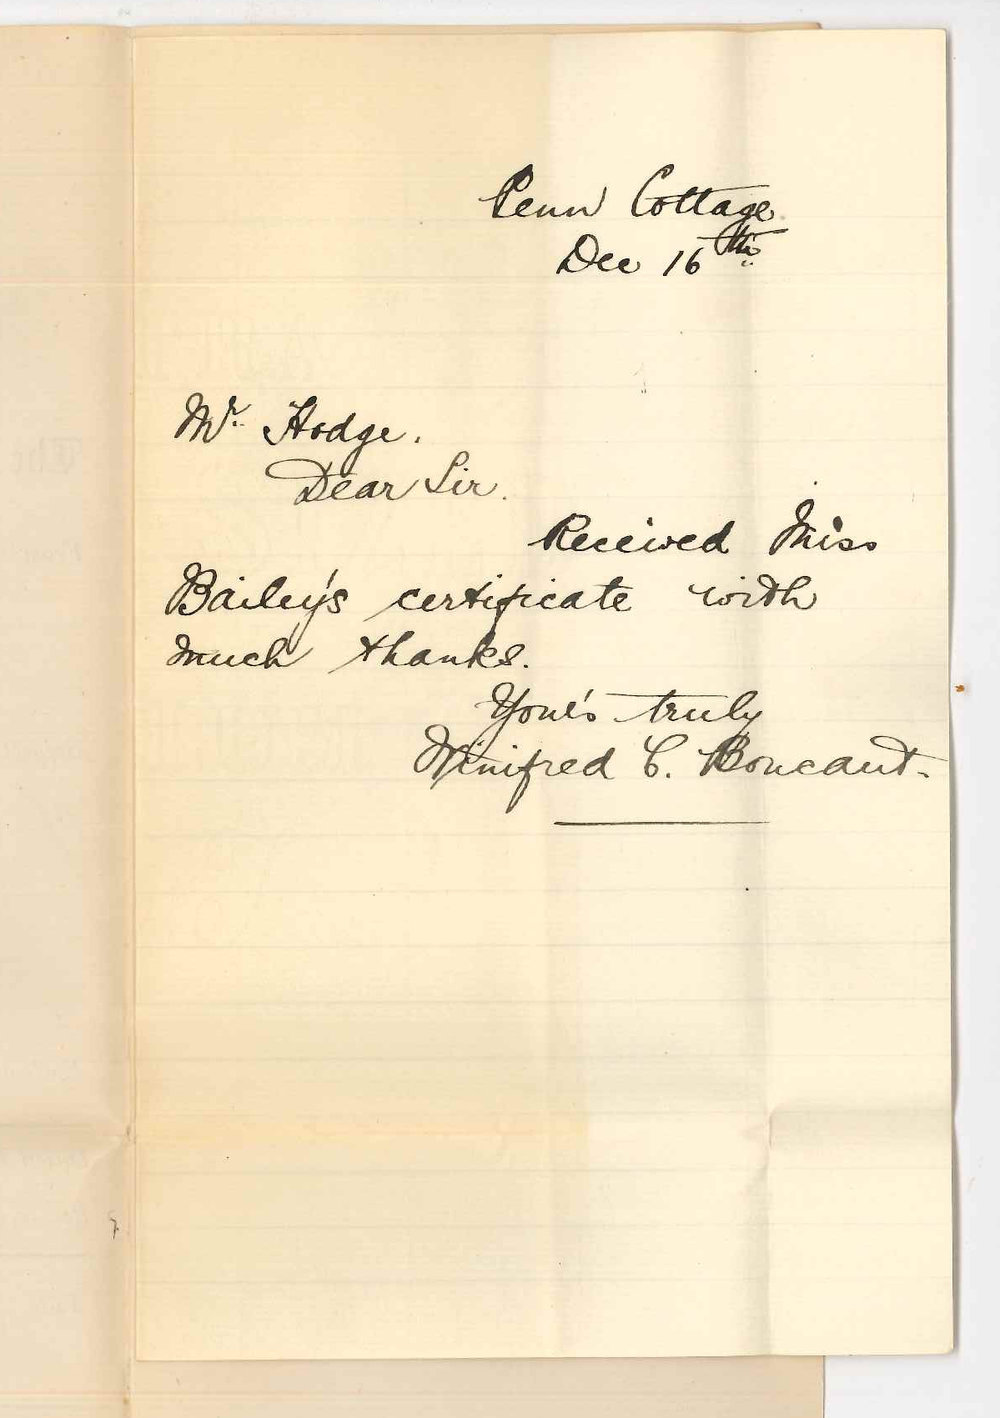 Penn Cottage
Dec 16th
Mr. Hodge.
Dear Sir.
Received Miss
Bailey's certificate with
much thanks.
Your's truly
Winifred C. Boucaut.